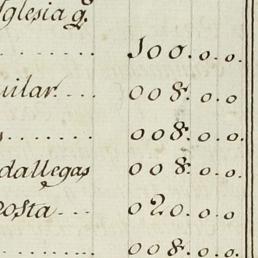 Iglesia q.
....... 100.o.o.
uilar... 008.o.o
s....... 008.o.o.
dallegas 008.o.o
posta... 020.o.o
........ 008.o.o